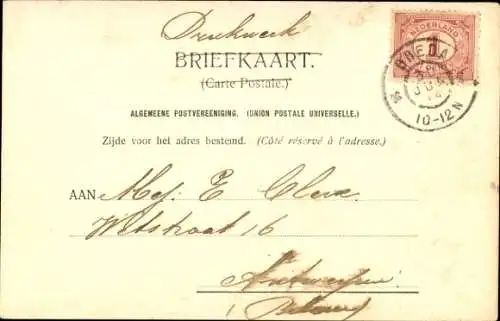 Drukwerk
BRIEFKAART.
(Carte Postale.)
NEDERLAND
1
BREDA
10-12 N
ALGEMEENE POSTVEREENIGING. (UNION POSTALE UNIVERSELLE.)
Zijde voor het adres bestemd. (Côté réservé à l'adresse.)
AAN Mej. E
Wetstraat 16
Antwerpen